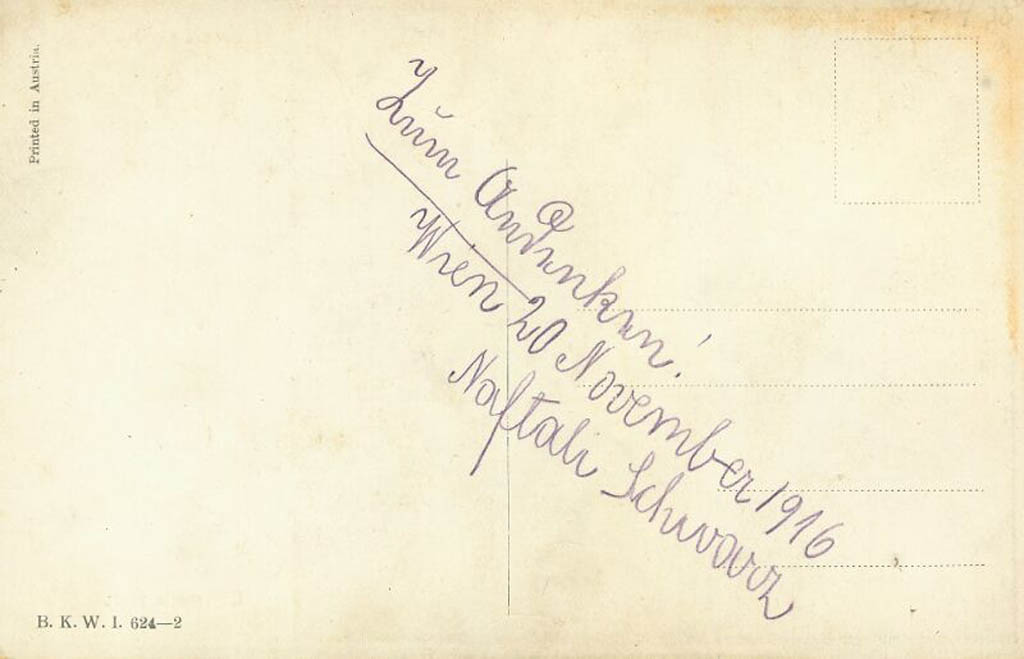 Printed in Austria.
Zum Andenken!
Wien 20 November 1916
Naftali Schwarz
B. K. W. I. 624—2